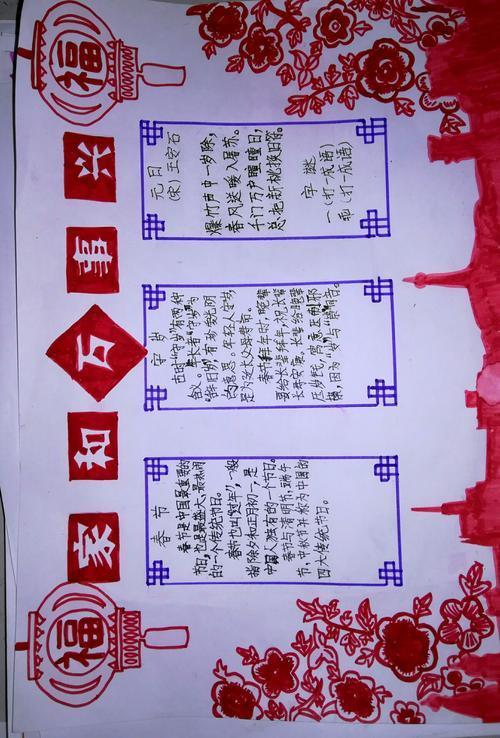 福
家和万事兴
福
春节
春节是中国最重要的
节日,也是最盛大、最热闹
的一个传统节日。
春节也叫“过年”,一般
指除夕和正月初一,是
中国人独有的一个节日。
春节与清明节、端午
节、中秋节并称为中国的
四大传统节日。
守岁
古时“守岁”有两种
含义。年长者“守岁”为
“辞旧岁”,有珍爱光阴
的意思。年轻人守岁,
是为延长父母寿命。
春节拜年时,晚辈
要给长辈拜年,祝长辈
长寿安康,长辈给晚辈
压岁钱,寓意压制邪
祟,因为“岁”与“祟”谐音。
元日
(宋)王安石
爆竹声中一岁除,
春风送暖入屠苏。
千门万户曈曈日,
总把新桃换旧符。
字谜
一(打一成语)
乖(打一成语)